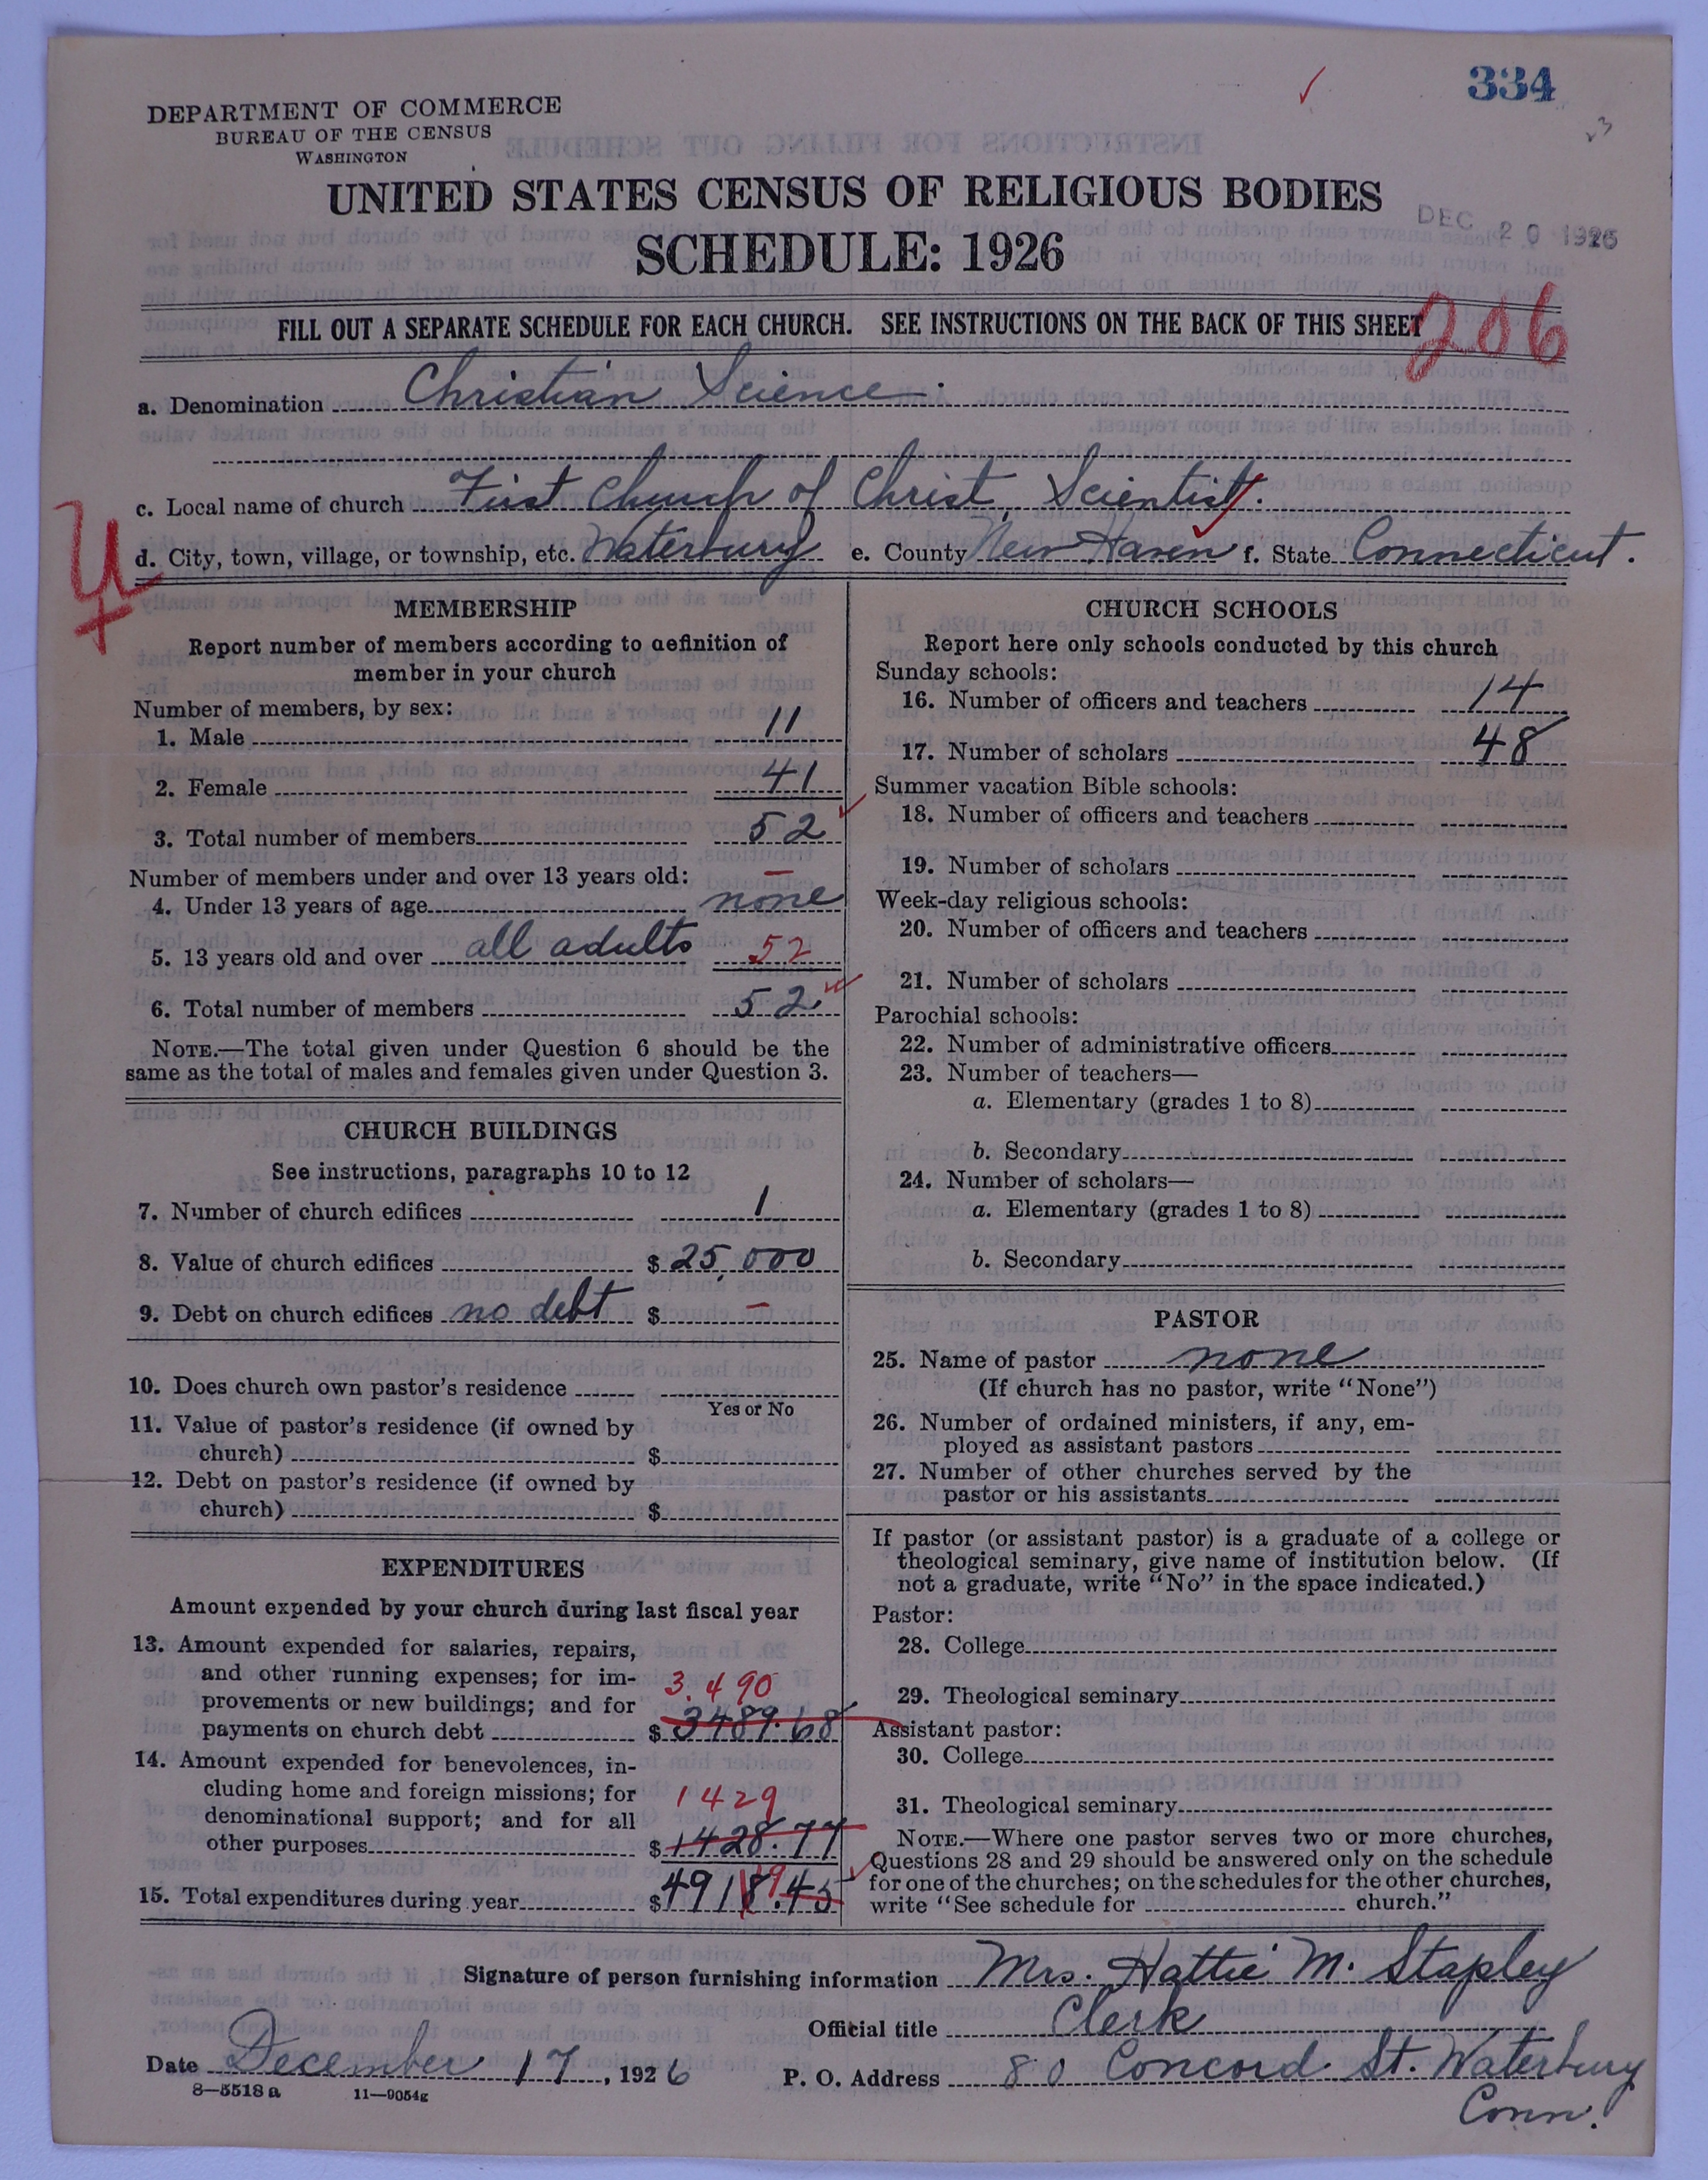 334
23
DEPARTMENT OF COMMERCE
BUREAU OF THE CENSUS
WASHINGTON
UNITED STATES CENSUS OF RELIGIOUS BODIES
SCHEDULE: 1926
DEC 20 1926
FILL OUT A SEPARATE SCHEDULE FOR EACH CHURCH. SEE INSTRUCTIONS ON THE BACK OF THIS SHEET
206
a. Denomination Christian Science.
c. Local name of church First Church of Christ, Scientist.
d. City, town, village, or township, etc. Waterbury e. County New Haven f. State Connecticut.
U
MEMBERSHIP
Report number of members according to definition of
member in your church
Number of members, by sex:
1. Male 11
2. Female 41
3. Total number of members 52
Number of members under and over 13 years old: –
4. Under 13 years of age none
5. 13 years old and over all adults 52
6. Total number of members 52
NOTE.—The total given under Question 6 should be the
same as the total of males and females given under Question 3.
CHURCH BUILDINGS
See instructions, paragraphs 10 to 12
7. Number of church edifices 1
8. Value of church edifices $ 25,000
9. Debt on church edifices no debt $ –
10. Does church own pastor's residence
Yes or No
11. Value of pastor's residence (if owned by
church) $
12. Debt on pastor's residence (if owned by
church) $
EXPENDITURES
Amount expended by your church during last fiscal year
13. Amount expended for salaries, repairs,
and other running expenses; for im-
provements or new buildings; and for 3,490
payments on church debt $ 3489.68
14. Amount expended for benevolences, in-
cluding home and foreign missions; for
denominational support; and for all 1429
other purposes $ 1428.77
15. Total expenditures during year $ 4918.45 19
CHURCH SCHOOLS
Report here only schools conducted by this church
Sunday schools:
16. Number of officers and teachers 14
17. Number of scholars 48
Summer vacation Bible schools:
18. Number of officers and teachers
19. Number of scholars
Week-day religious schools:
20. Number of officers and teachers
21. Number of scholars
Parochial schools:
22. Number of administrative officers
23. Number of teachers—
a. Elementary (grades 1 to 8)
b. Secondary
24. Number of scholars—
a. Elementary (grades 1 to 8)
b. Secondary
PASTOR
25. Name of pastor none
(If church has no pastor, write "None")
26. Number of ordained ministers, if any, em-
ployed as assistant pastors
27. Number of other churches served by the
pastor or his assistants
If pastor (or assistant pastor) is a graduate of a college or
theological seminary, give name of institution below. (If
not a graduate, write "No" in the space indicated.)
Pastor:
28. College
29. Theological seminary
Assistant pastor:
30. College
31. Theological seminary
NOTE.—Where one pastor serves two or more churches,
Questions 28 and 29 should be answered only on the schedule
for one of the churches; on the schedules for the other churches,
write "See schedule for church."
Signature of person furnishing information Mrs. Hattie M. Stapley
Official title Clerk
Date December 17, 1926 P. O. Address 80 Concord St. Waterbury
Conn.
8—5518 a 11—9054g